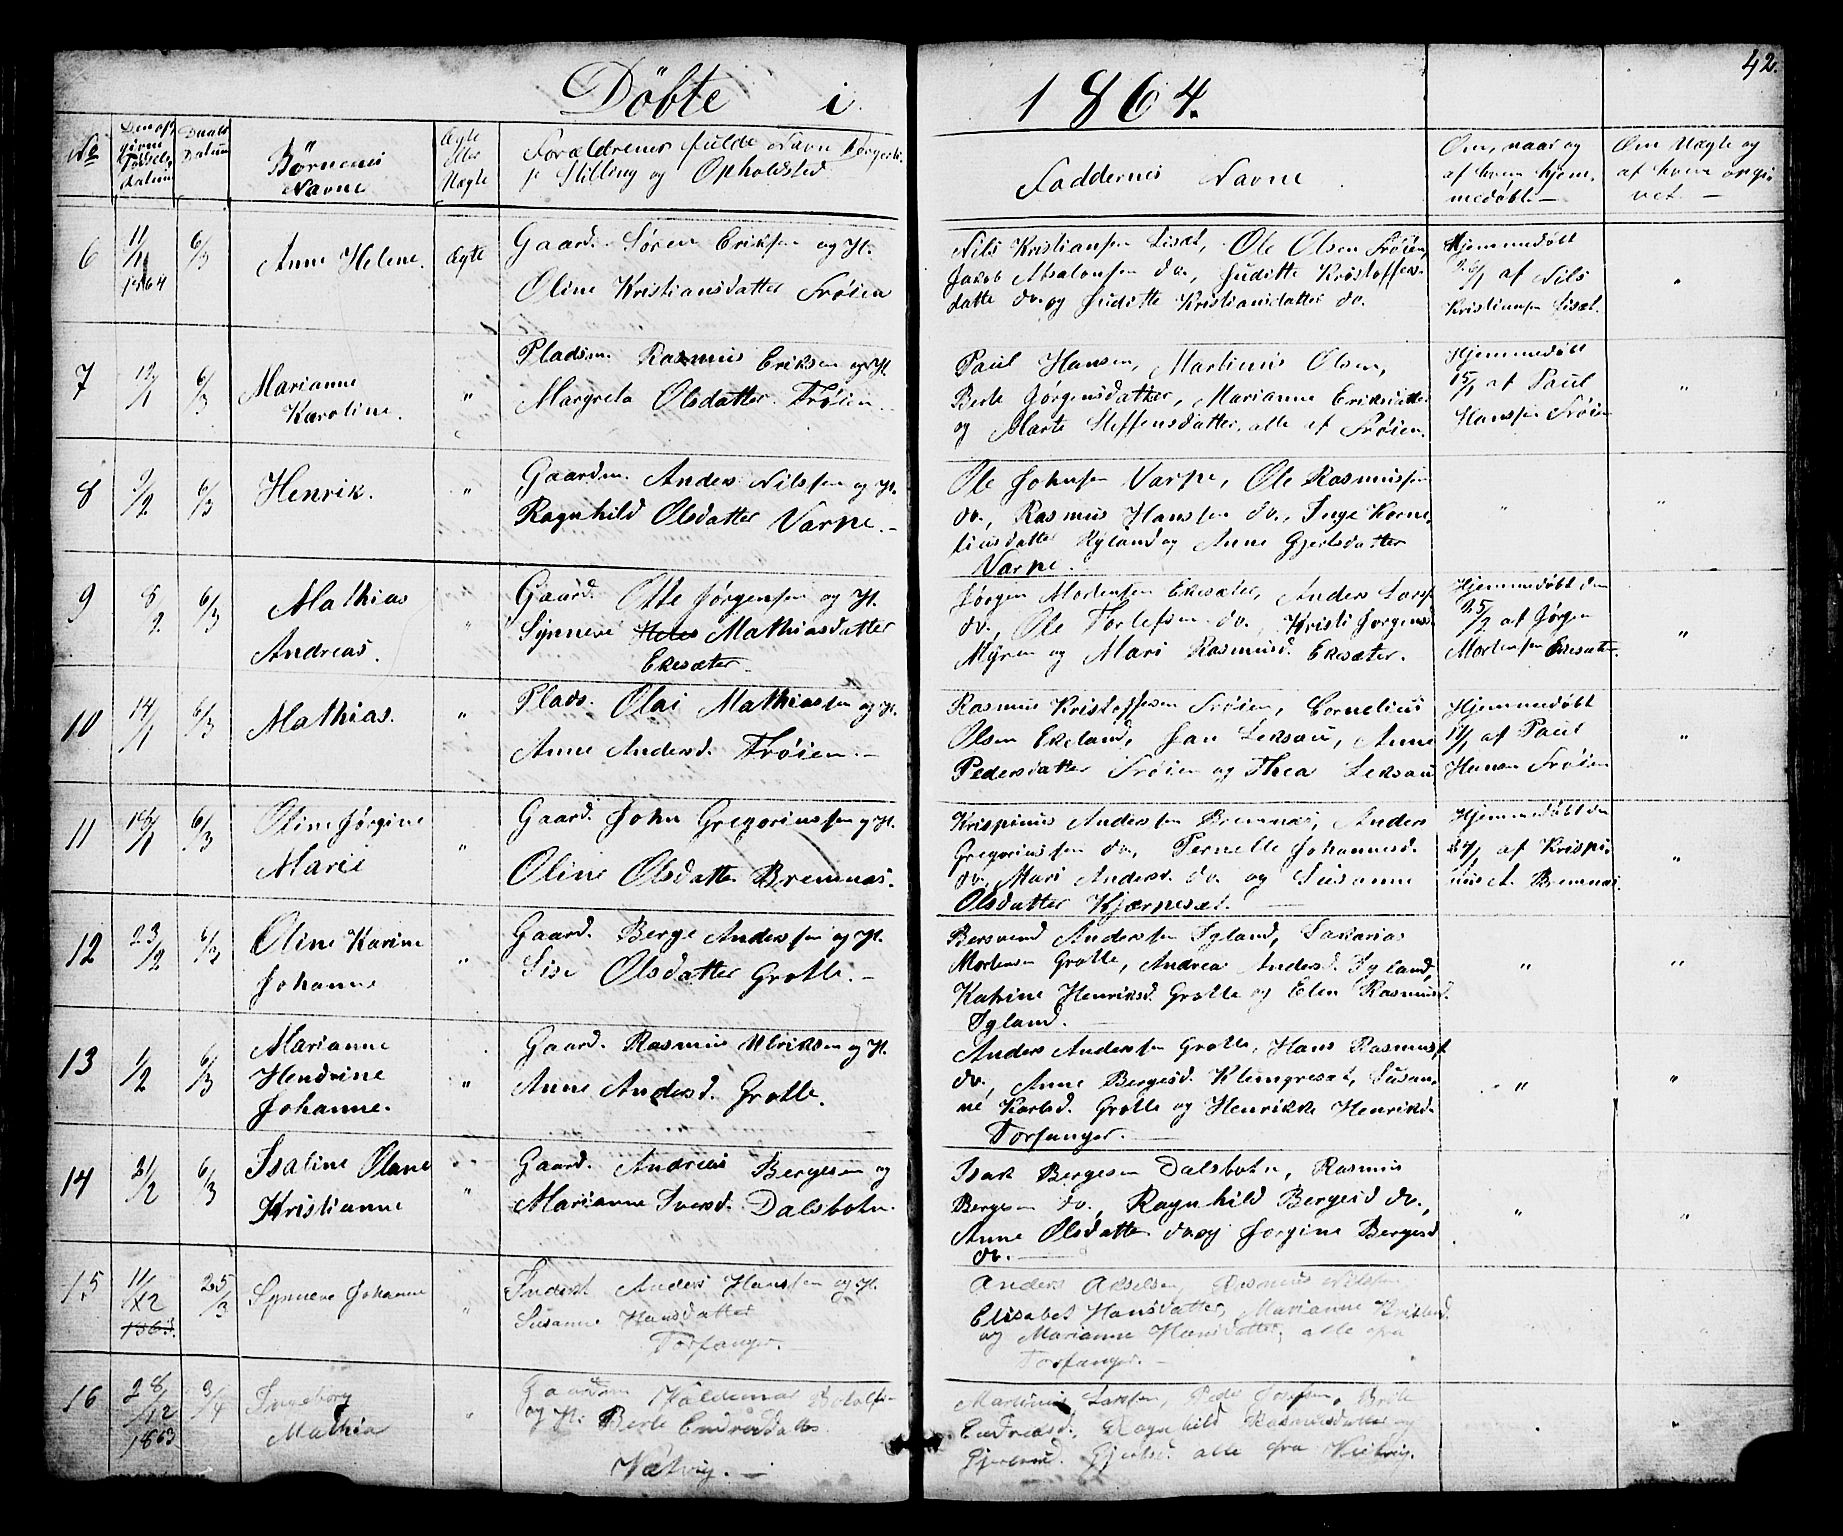 42.
Döbte i 1864.
No
Den opgivne Födsels datum
Daabs Datum
Börnenes Navne
Ægte eller Uægte
Forældrenes fulde Navn Borgerl. Stilling og Opholdsted
Faddernes Navne
Om, naar og af hvem hjemmedøbt. —
Om Uægte og af hvem opgivet. —
6 11/1 1864 6/3 Anne Helene. Ægte
Gaard. Søren Eriksen og H.
Oline Kristiansdatter Frøien
Nils Kristiansen Lisæt, Ole Olsen Frøien,
Jakob Absalonsen do., Juditte Kristoffers
datte do. og Juditte Kristiansdatter do.
Hjemmedøbt
26/1 af Nils
Kristiansen Lisæt.
"
7 12/1 6/3 Marianne
Karoline. "
Pladsm. Rasmus Eriksen og H.
Margreta Olsdatter Frøien.
Paul Hansen, Martinus Olsen,
Berte Jørgensdatter, Marianne Eriksdatter
og Marte Steffensdatter, alle af Frøien.
Hjemmedøbt
15/1 af Paul
Hanssen Frøien
"
8 9/2 6/3 Henrik. "
Gaardm. Anders Nilssen og H.
Ragnhild Olsdatter Varpe. -
Ole Johnsen Varpe, Ole Rasmussen
do., Rasmus Hanssen do., Inge Korne,
liusdatter Ryland og Anne Gjertsdatter
Varpe.
" "
9 8/2 6/3 Mathias
Andreas. "
Gaard. Otte Jørgensen og H.
Synneve Mathiasdatter
Ekesæter
Jørgen Mortensen Ekesæter, Anders Larss
do., Ole Torlefsen do., Kristi Jørgens
Myren og Mari Rasmusd. Ekesæter.
Hjemmedøbt den
25/2 af Jørgen
Mortensen Ekesæt
"
10 14/1 6/3 Mathias. "
Plads. Olai Mathiassen og H.
Anne Andersd. Frøien. -
Rasmus Kristoffersen Frøien, Cornelius
Olsen Ekeland, Jan Leksau, Anne
Pedersdatter Frøien og Thea Leksau
Hjemmedøbt
17/1 af Paul
Hansen Frøien
"
11 16/1 6/3 Oline Jørgine
Marie "
Gaard. John Gregoriussen og H.
Oline Olsdatter Bremnæs.
Krispinus Anderssen Bremnæs, Anders
Gregoriussen do., Pernelle Johannesd.
do., Mari Andersd. do. og Susanne
Olsdatter Kjærnesæt. —
Hjemmedøbt den
24/1 af Krispi-
nus A. Bremnæs.
"
12 23/2 6/3 Oline Karine
Johanne "
Gaard. Berge Anderssen og H.
Sise Olsdatter Grotle. -
Bersvend Anderssen Igland, Sakarias
Mortensen Grotle, Andrea Andersd. Igland,
Katrine Henriksd. Grotle og Elen Rasmusd.
Igland. —
" "
13 1/2 6/3 Marianne
Hendrine
Johanne. "
Gaard. Rasmus Ulriksen og H.
Anne Andersd. Grotle.
Anders Anderssen Grotle, Hans Rasmuss
do., Anne Bergesd. Klungresæt, Susan,
ne Karlsd. Grotle og Henrikke Henriksd.
Torfanger. —
" "
14 21/2 6/3 Isaline Olane
Kristianne "
Gaard. Andreas Bergesen og
Marianne Iversd. Dalsbotn.
Isak Bergesen Dalsbotn, Rasmus
Bergesen do., Ragnhild Bergesd do.,
Anne Olsdatter do. og Jørgine Bergesd
do. —
" "
15 11/12 1863. 25/3 Synneve Johanne "
Inderst Anders Hanssen og H.
Susanne Hansdatter
Torfanger. -
Anders Akselsen, Rasmus Nilsen
Elisabet Hansdatter, Marianne Kristensd.
og Marianne Hansdatter, alle fra
Torfanger. -
"
16 28/12 1863 3/4 Ingeborg
Mathia "
Gaardm Valdemar Botolfsen
og H. Berte Endresdatter
Vætvig. —
Martinus Larssen, Peder Josefsen, Brite
Endresd., Ragnhild Rasmusdatter og
Gjertsd. alle fra Vætvig.
"